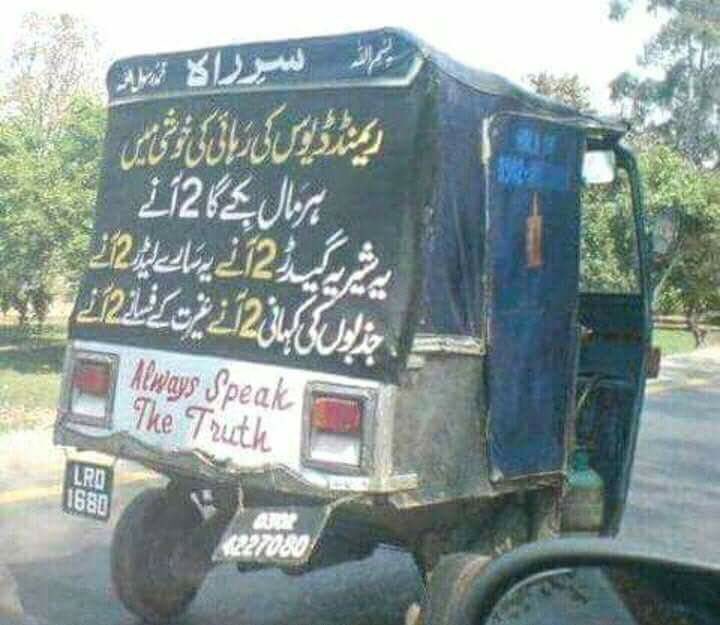 بسم اللہ سردراٹا
ریمنڈ ڈیوس کی رہائی کی خوشی میں
ہر مال بکے گا 2 آنے
یہ شیر یہ گیدڑ 2 آنے یہ سارے لیڈر 2 آنے
جذبوں کی کہانی 2 آنے غیرت کے فسانے 2 آنے
Always Speak
The Truth
LRO
1680
0302
4227080